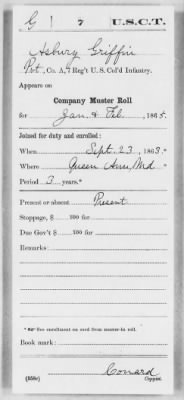 G | 7 | U.S.C.T.
Asbury Griffin
Pvt, Co. A, 7 Reg't U. S. Col'd Infantry.
Appears on
Company Muster Roll
for Jan. & Feb., 1865.
Joined for duty and enrolled:
When Sept. 23, 1863.*
Where Queen Ann, Md
Period 3 years.*
Present or absent Present
Stoppage, $ 100 for
Due Gov't $ 100 for
Remarks:
*See enrollment on card from muster-in roll.
Book mark:
(358c) Conard
Copyist.